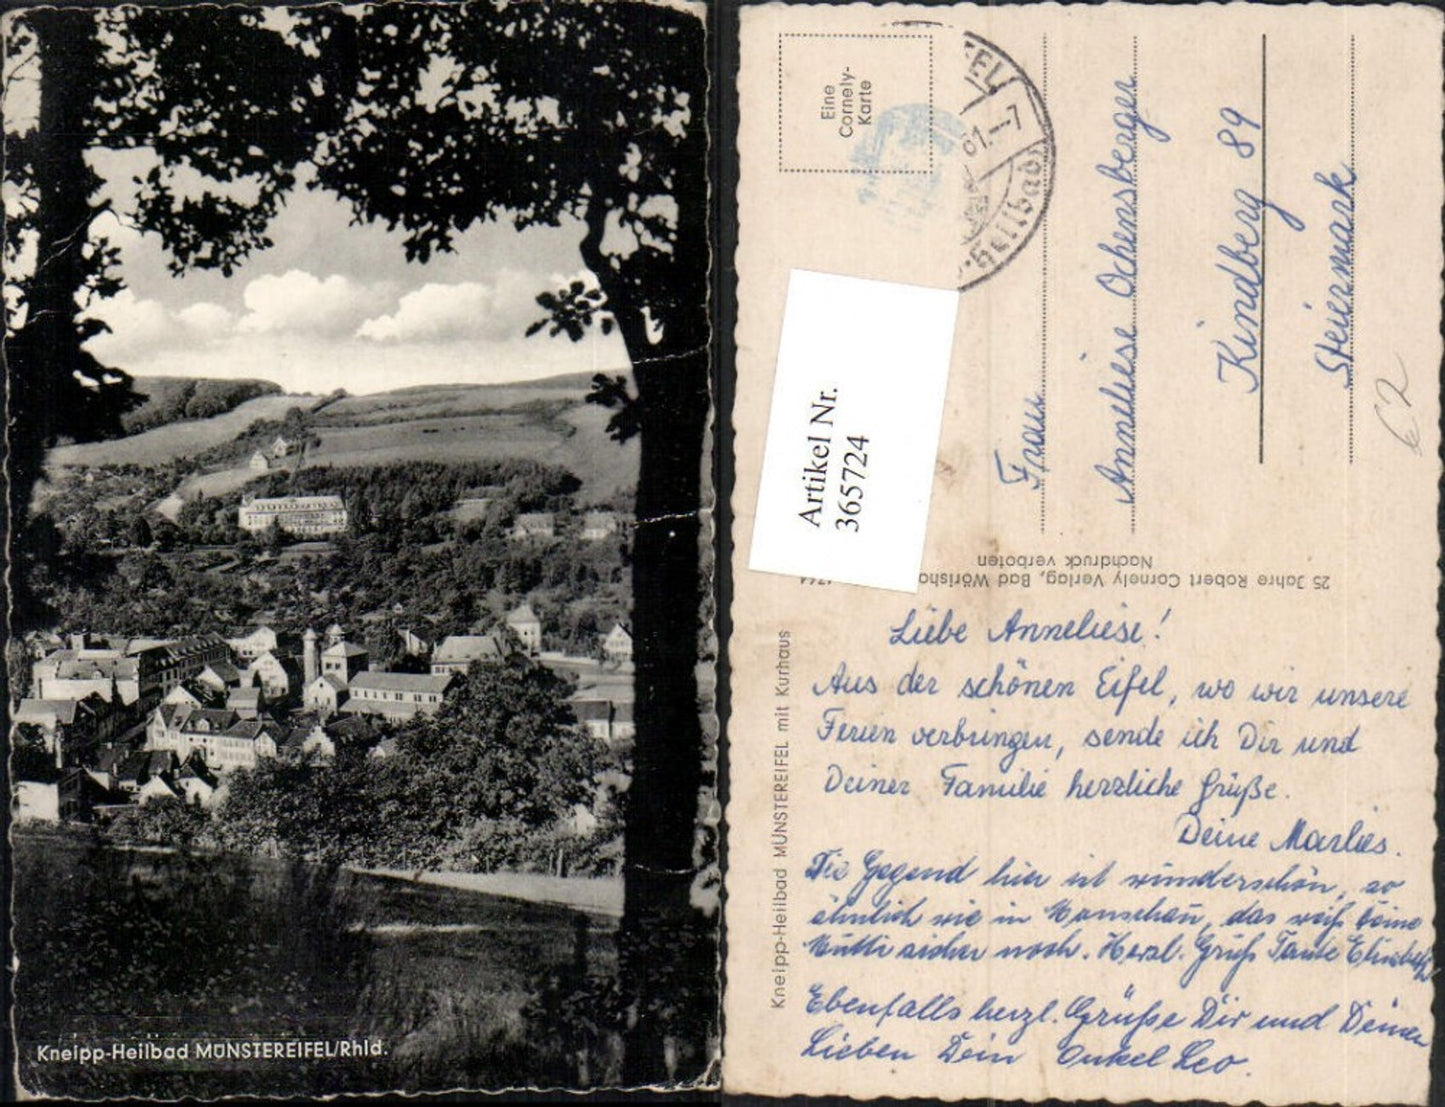 Kneipp-Heilbad MÜNSTEREIFEL/Rhld.
Eine
Cornely-
Karte
61.--7
Heilbad
Artikel Nr.
365724
Frau
Anneliese Ochensberger
Kindberg 89
Steiermark
€2
25 Jahre Robert Cornely Verlag, Bad Wörisho
Nachdruck verboten
Kneipp-Heilbad MÜNSTEREIFEL mit Kurhaus
Liebe Anneliese!
Aus der schönen Eifel, wo wir unsere
Ferien verbringen, sende ich Dir und
Deiner Familie herzliche Grüße.
Deine Marlies.
Die Gegend hier ist wunderschön, so
ähnlich wie in Monschau, das weiß Deine
Mutti sicher noch. Herzl. Gruß Tante Elisabeth
Ebenfalls herzl. Grüße Dir und Deinen
Lieben Dein Onkel Leo.